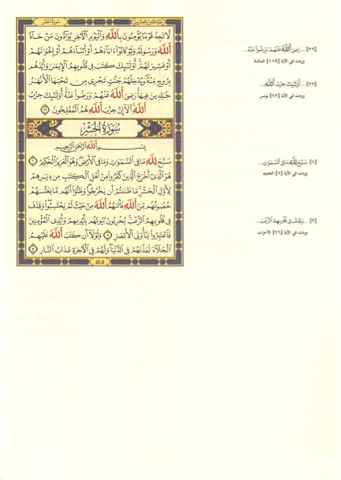 لَّا تَجِدُ قَوْمًا يُؤْمِنُونَ بِاللَّهِ وَالْيَوْمِ الْآخِرِ يُوَادُّونَ مَنْ حَادَّ
اللَّهَ وَرَسُولَهُ وَلَوْ كَانُوا آبَاءَهُمْ أَوْ أَبْنَاءَهُمْ أَوْ إِخْوَانَهُمْ
أَوْ عَشِيرَتَهُمْ أُولَٰئِكَ كَتَبَ فِي قُلُوبِهِمُ الْإِيمَانَ وَأَيَّدَهُم
بِرُوحٍ مِّنْهُ وَيُدْخِلُهُمْ جَنَّاتٍ تَجْرِي مِن تَحْتِهَا الْأَنْهَارُ
خَالِدِينَ فِيهَا رَضِيَ اللَّهُ عَنْهُمْ وَرَضُوا عَنْهُ أُولَٰئِكَ حِزْبُ
اللَّهِ أَلَا إِنَّ حِزْبَ اللَّهِ هُمُ الْمُفْلِحُونَ ٢٢
سُورَةُ الْحَشْرِ
بِسْمِ اللَّهِ الرَّحْمَٰنِ الرَّحِيمِ
سَبَّحَ لِلَّهِ مَا فِي السَّمَاوَاتِ وَمَا فِي الْأَرْضِ وَهُوَ الْعَزِيزُ الْحَكِيمُ ١
هُوَ الَّذِي أَخْرَجَ الَّذِينَ كَفَرُوا مِنْ أَهْلِ الْكِتَابِ مِن دِيَارِهِمْ
لِأَوَّلِ الْحَشْرِ مَا ظَنَنتُمْ أَن يَخْرُجُوا وَظَنُّوا أَنَّهُم مَّانِعَتُهُمْ
حُصُونُهُم مِّنَ اللَّهِ فَأَتَاهُمُ اللَّهُ مِنْ حَيْثُ لَمْ يَحْتَسِبُوا وَقَذَفَ
فِي قُلُوبِهِمُ الرُّعْبَ يُخْرِبُونَ بُيُوتَهُم بِأَيْدِيهِمْ وَأَيْدِي الْمُؤْمِنِينَ
فَاعْتَبِرُوا يَا أُولِي الْأَبْصَارِ ٢ وَلَوْلَا أَن كَتَبَ اللَّهُ عَلَيْهِمُ
الْجَلَاءَ لَعَذَّبَهُمْ فِي الدُّنْيَا وَلَهُمْ فِي الْآخِرَةِ عَذَابُ النَّارِ ٣
٥٤٥
[٢٢] ...رَضِيَ اللَّهُ عَنْهُمْ وَرَضُوا عَنْهُ...
وردت في الآية [١١٩] المائدة
[٢٢] ...أُولَٰئِكَ حِزْبُ اللَّهِ...
وردت في الآية يونس
[١] سَبَّحَ لِلَّهِ مَا فِي السَّمَاوَاتِ...
وردت في الآية [١] الحديد
[٢] ...وَقَذَفَ فِي قُلُوبِهِمُ الرُّعْبَ...
وردت في الآية [٢٦] الأحزاب